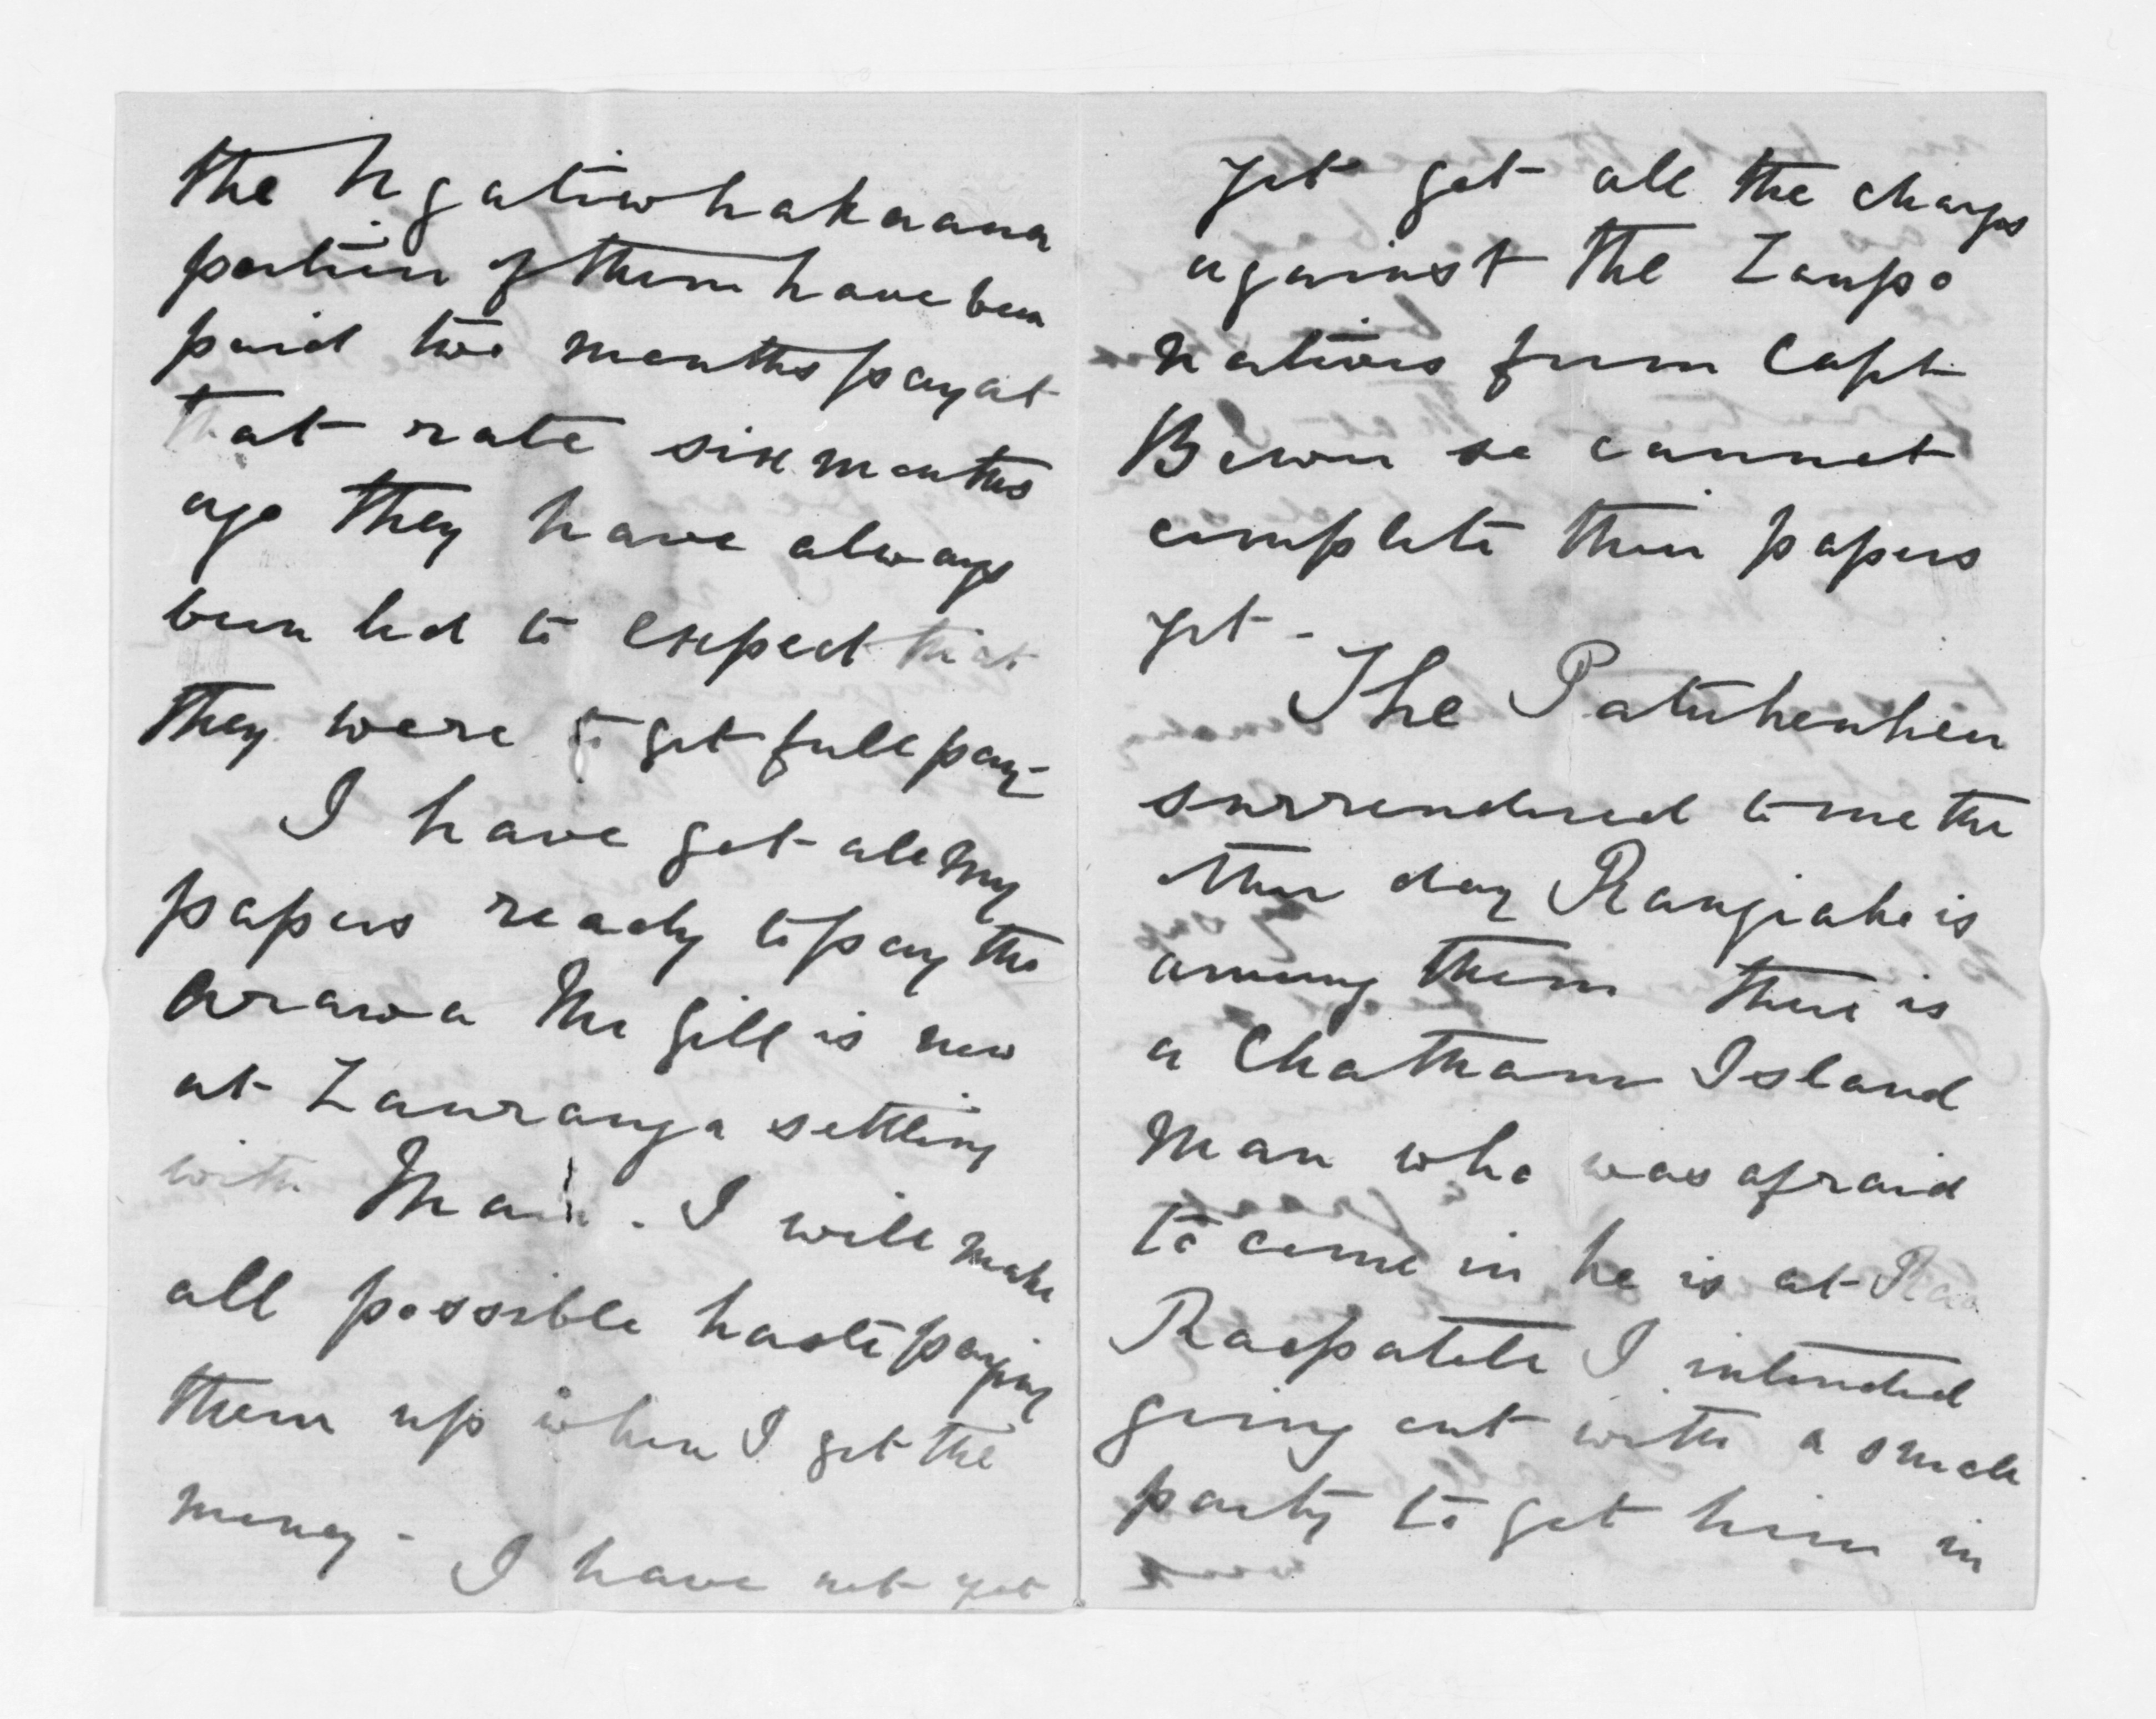 the Ngatiwhakaaua
portion of them have been
paid two months pay at
that rate six months
ago they have always
been led to expect that
they were to get full pay -
I have got all my
papers ready to pay the
Arawa Mr Gill is now
at Tauranga settling
with Mair. I will make
all possible haste paying
them up when I get the
money - I have not yet
yet got all the charges
against the Taupo
natives from Capt
Bower so cannot
complete their papers
yet -
The Patuheuheu
surrendered to me the
other day Rangiaho is
among them there is
a Chatham Island
Man who was afraid
to come in he is at
Raepatete I intended
going out with a small
party to get him in